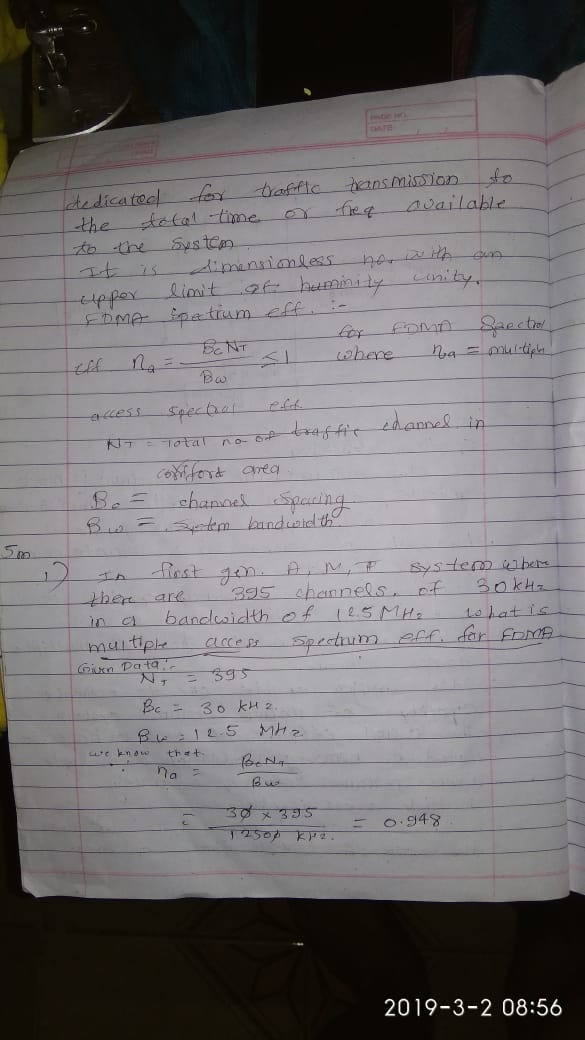 PAGE NO.
DATE
dedicated for traffic transmission to
the total time or freq available
to the system.
It is dimensionless no. with an
upper limit of huminity unity.
FDMA Spetrum eff. :-
eff ηa = BcNT / Bw ≤ 1 for FDMA Spectral
where ηa = multiple
access spectral eff.
NT = Total no of traffic channel in
area
Bc = channel spacing
Bw = System bandwidth
5m
1) In first gen. A, M, P system where
there are 395 channels. of 30 kHz
in a bandwidth of 12.5 MHz what is
multiple access spectrum eff. for FDMA
Given Data :-
NT = 395
Bc = 30 kHz.
Bw = 12.5 MHz
we know that
ηa = BcNT / Bw
= 30 x 395 / 12500 kHz. = 0.948
2019-3-2 08:56